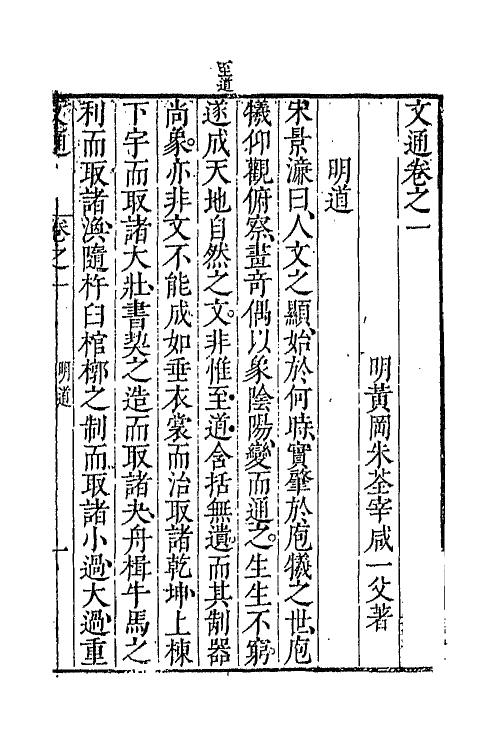 至道
文通卷之一
明黃岡朱荃宰咸一父著
明道
宋景濂曰、人文之顯、始於何時、實肇於庖犧之世、庖
犧仰觀俯察、畫奇偶以象陰陽、變而通之。生生不窮。
遂成天地自然之文。非惟至道含括無遺。而其制器
尚象。亦非文不能成。如垂衣裳而治取諸乾坤、上棟
下宇而取諸大壯、書契之造而取諸夬、舟楫牛馬之
利而取諸渙、隨杵臼棺槨之制而取諸小過、大過、重
文通
卷之一
明道
一